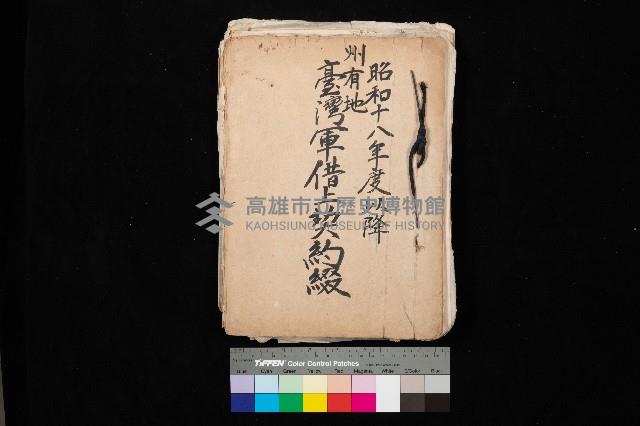 昭和十八年度以降
州有地
臺灣軍借上契約綴
高雄市立歷史博物館
KAOHSIUNG MUSEUM OF HISTORY
TIFFEN Color Control Patches
Blue Cyan Green Yellow Red Magenta White 3/Color Black